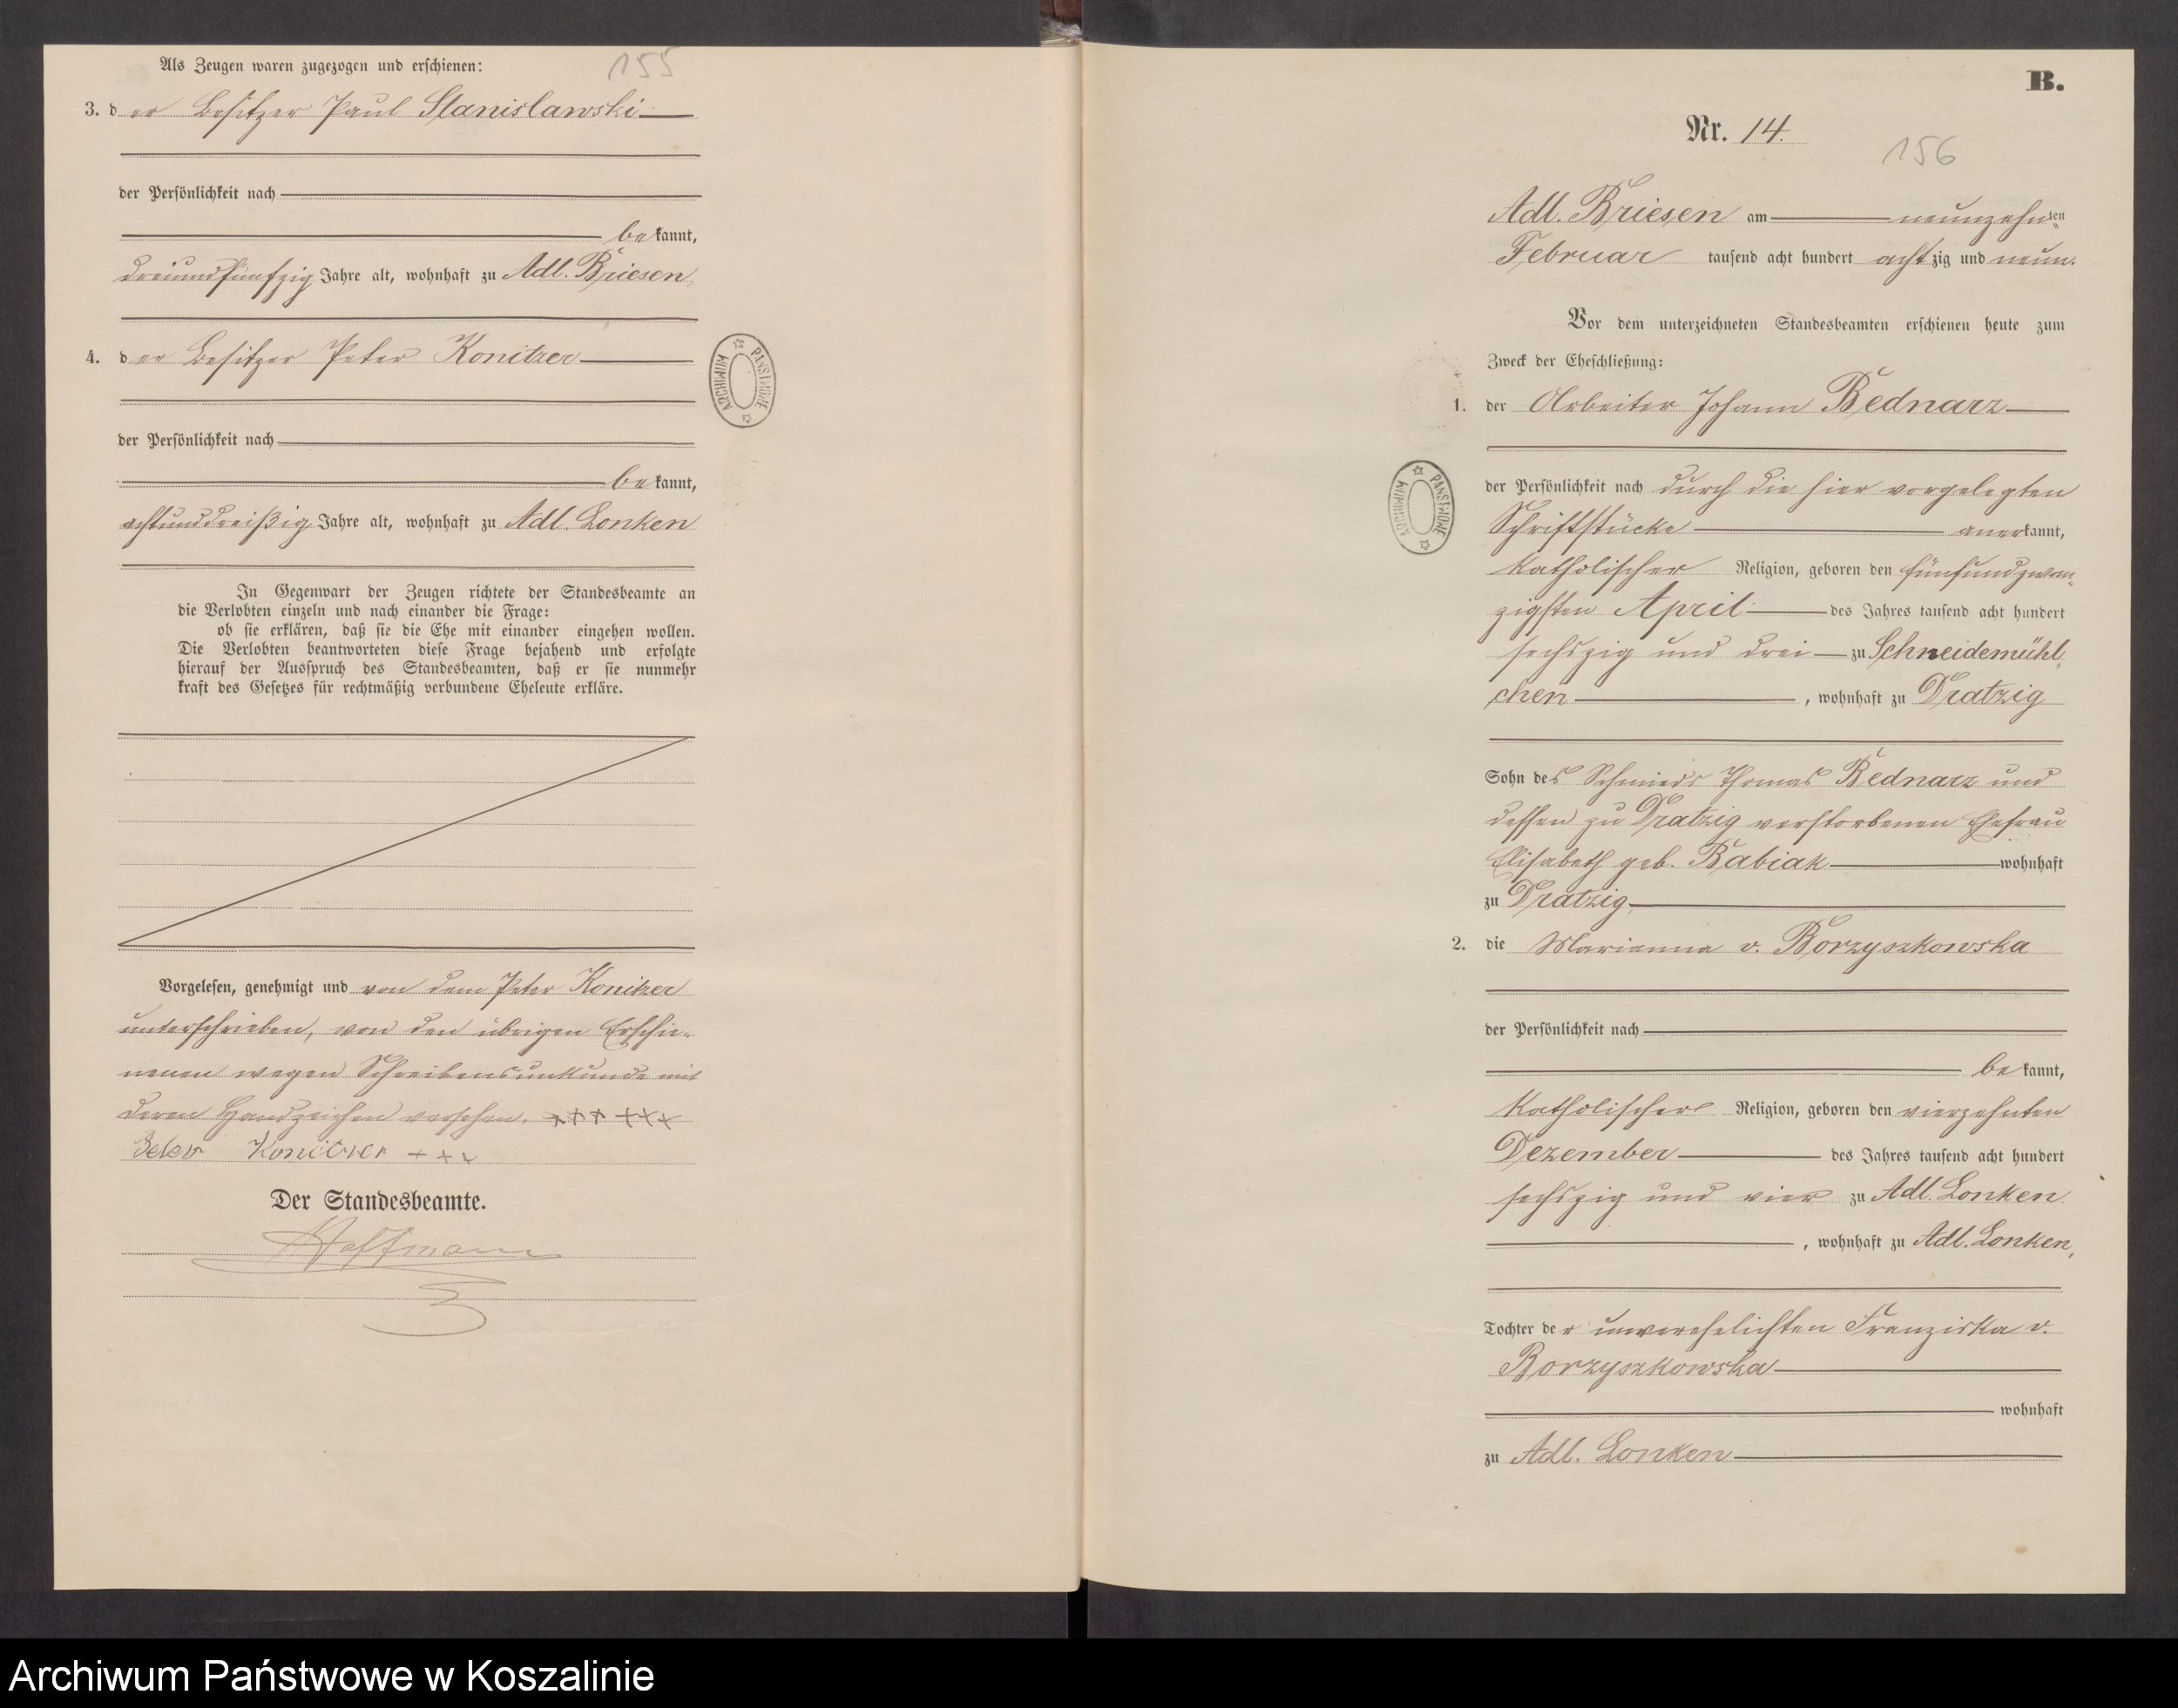 155
Als Zeugen waren zugezogen und erschienen:
3. der Besitzer Paul Stanislawski
der Persönlichkeit nach
bekannt,
dreiundfünfzig Jahre alt, wohnhaft zu Adl. Briesen,
4. der Besitzer Peter Konitzer
der Persönlichkeit nach
bekannt,
achtunddreißig Jahre alt, wohnhaft zu Adl. Lonken
In Gegenwart der Zeugen richtete der Standesbeamte an
die Verlobten einzeln und nach einander die Frage:
ob sie erklären, daß sie die Ehe mit einander eingehen wollen.
Die Verlobten beantworteten diese Frage bejahend und erfolgte
hierauf der Ausspruch des Standesbeamten, daß er sie nunmehr
kraft des Gesetzes für rechtmäßig verbundene Eheleute erkläre.
Vorgelesen, genehmigt und von dem Peter Konitzer
unterschrieben, von den übrigen Erschie-
nenen wegen Schreibensunkunde mit
deren Handzeichen versehen. +++ +++
Peter Konitzer +++
Der Standesbeamte.
Hoffmann
ARCHIWUM PAŃSTWOWE
B.
Nr. 14.
156
Adl. Briesen am neunzehnten
Februar tausend acht hundert achtzig und neun.
Vor dem unterzeichneten Standesbeamten erschienen heute zum
Zweck der Eheschließung:
1. der Arbeiter Johann Bednarz
der Persönlichkeit nach durch die hier vorgelegten
Schriftstücke anerkannt,
katholischer Religion, geboren den fünfundzwan-
zigsten April des Jahres tausend acht hundert
sechszig und drei zu Schneidemühl-
chen, wohnhaft zu Dratzig
Sohn des Schmieds Thomas Bednarz und
dessen zu Dratzig verstorbenen Ehefrau
Elisabeth geb. Babiak wohnhaft
zu Dratzig
2. die Marianna v. Borzyszkowska
der Persönlichkeit nach
bekannt,
katholischer Religion, geboren den vierzehnten
Dezember des Jahres tausend acht hundert
sechszig und vier zu Adl. Lonken
, wohnhaft zu Adl. Lonken,
Tochter der unverehelichten Franziska v.
Borzyszkowska
wohnhaft
zu Adl. Lonken
ARCHIWUM PAŃSTWOWE
Archiwum Państwowe w Koszalinie